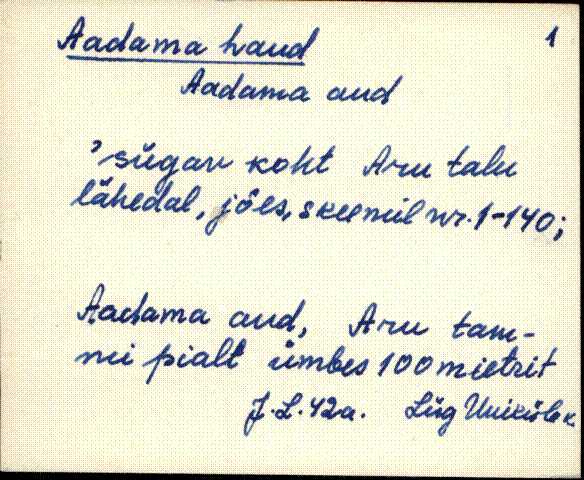 Aadama haud 1
Aadama aud
'sügav koht Aru talu
lähedal, jões, skeemil nr. 1-140;
Aadama aud, Aru tam-
mi pialt ümbes 100 mietrit
J. L. 42a. Lüg Uniküla k.